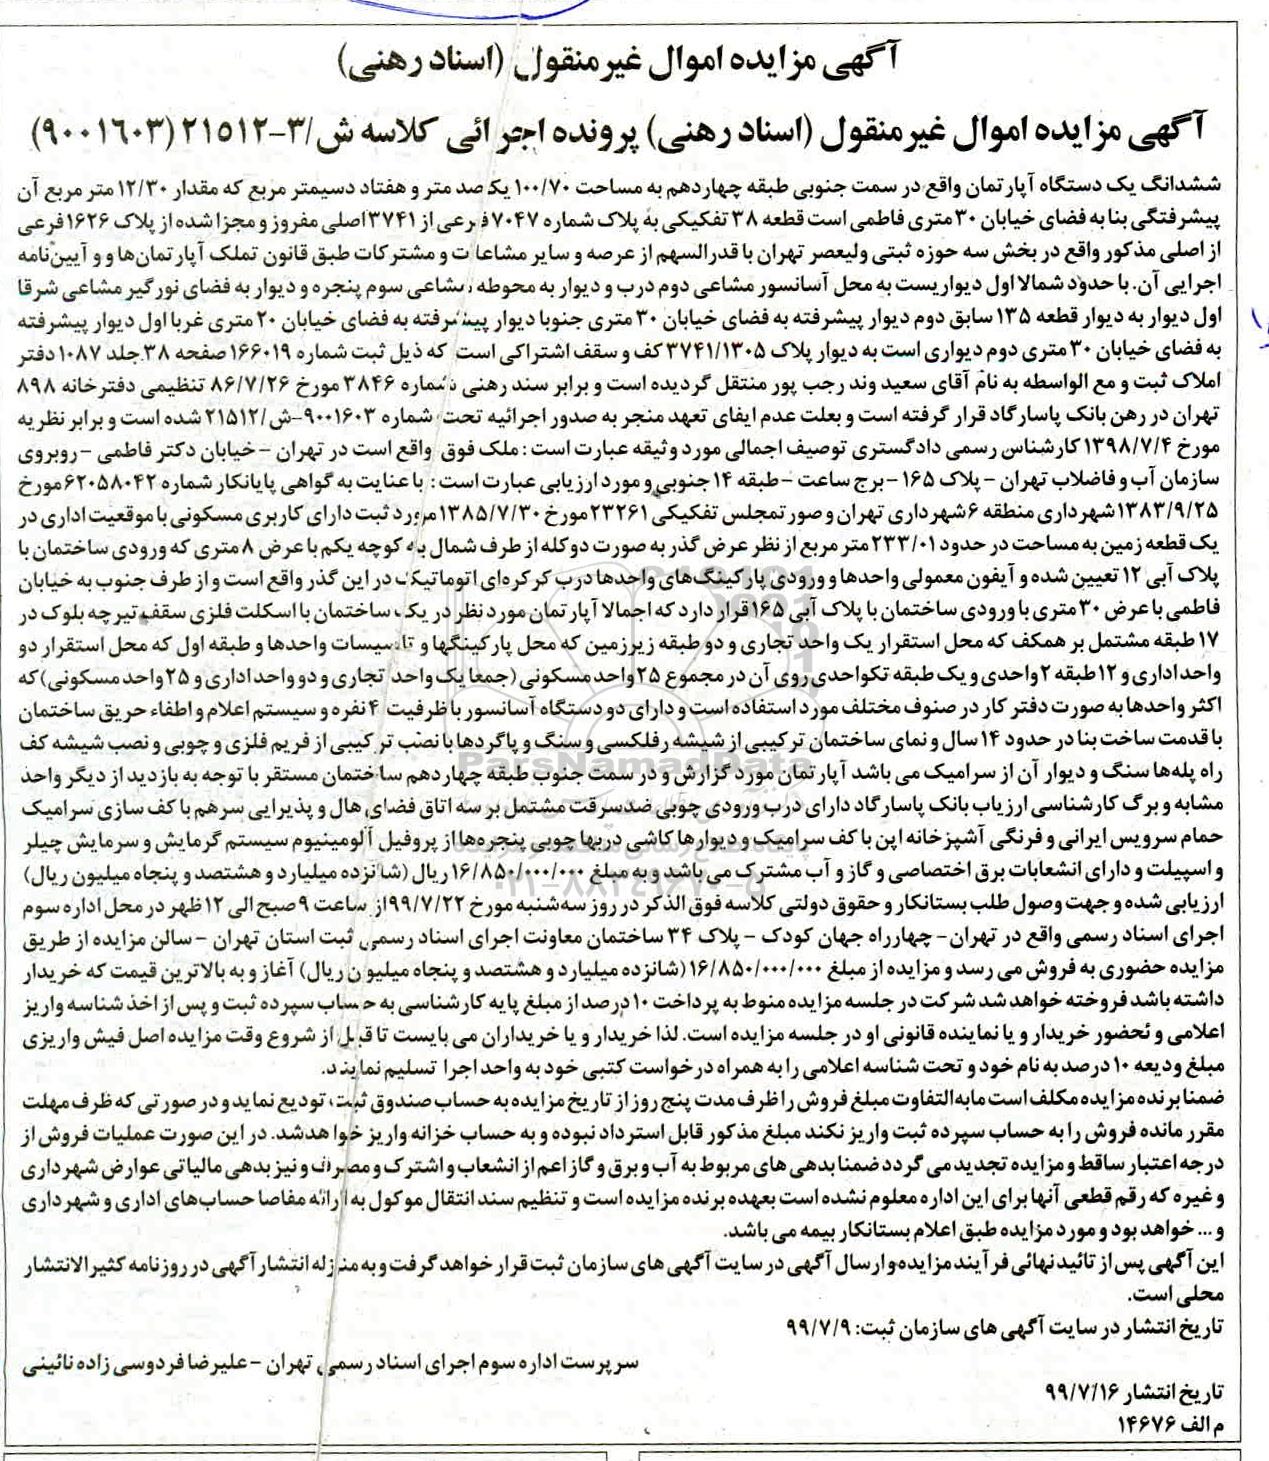 آگهی مزایده اموال غیرمنقول (اسناد رهنی)
آگهی مزایده اموال غیرمنقول (اسناد رهنی) پرونده اجرائی کلاسه ش/۳-۲۱۵۱۲ (۹۰۰۱۶۰۳)
ششدانگ یک دستگاه آپارتمان واقع در سمت جنوبی طبقه چهاردهم به مساحت ۱۰۰/۷۰ یکصد متر و هفتاد دسیمتر مربع که مقدار ۱۲/۳۰ متر مربع آن
پیشرفتگی بنا به فضای خیابان ۳۰ متری فاطمی است قطعه ۳۸ تفکیکی به پلاک شماره ۷۰۴۷ فرعی از ۳۷۴۱ اصلی مفروز و مجزا شده از پلاک ۱۶۲۶ فرعی
از اصلی مذکور واقع در بخش سه حوزه ثبتی ولیعصر تهران با قدرالسهم از عرصه و سایر مشاعات و مشترکات طبق قانون تملک آپارتمان‌ها و و آیین‌نامه
اجرایی آن. با حدود شمالا اول دیواریست به محل آسانسور مشاعی دوم درب و دیوار به محوطه مشاعی سوم پنجره و دیوار به فضای نورگیر مشاعی شرقا
اول دیوار به دیوار قطعه ۱۳۵ سابق دوم دیوار پیشرفته به فضای خیابان ۳۰ متری جنوبا دیوار پیشرفته به فضای خیابان ۲۰ متری غربا اول دیوار پیشرفته
به فضای خیابان ۳۰ متری دوم دیواری است به دیوار پلاک ۳۷۴۱/۱۳۰۵ کف و سقف اشتراکی است که ذیل ثبت شماره ۱۶۶۰۱۹ صفحه ۳۸ جلد ۱۰۸۷ دفتر
املاک ثبت و مع الواسطه به نام آقای سعید وند رجب پور منتقل گردیده است و برابر سند رهنی شماره ۳۸۴۶ مورخ ۸۶/۷/۲۶ تنظیمی دفترخانه ۸۹۸
تهران در رهن بانک پاسارگاد قرار گرفته است و بعلت عدم ایفای تعهد منجر به صدور اجرائیه تحت شماره ۹۰۰۱۶۰۳-ش/۲۱۵۱۲ شده است و برابر نظریه
مورخ ۱۳۹۸/۷/۴ کارشناس رسمی دادگستری توصیف اجمالی مورد وثیقه عبارت است : ملک فوق واقع است در تهران - خیابان دکتر فاطمی - روبروی
سازمان آب و فاضلاب تهران - پلاک ۱۶۵ - برج ساعت - طبقه ۱۴ جنوبی و مورد ارزیابی عبارت است : با عنایت به گواهی پایانکار شماره ۶۲۰۵۸۰۴۲ مورخ
۱۳۸۳/۹/۲۵ شهرداری منطقه ۶ شهرداری تهران و صورتمجلس تفکیکی ۲۳۲۶۱ مورخ ۱۳۸۵/۷/۳۰ مورد ثبت دارای کاربری مسکونی با موقعیت اداری در
یک قطعه زمین به مساحت در حدود ۲۳۳/۰۱ متر مربع از نظر عرض گذر به صورت دوکله از طرف شمال به کوچه یکم با عرض ۸ متری که ورودی ساختمان با
پلاک آبی ۱۲ تعیین شده و آیفون معمولی واحدها و ورودی پارکینگ‌های واحدها درب کرکره‌ای اتوماتیک در این گذر واقع است و از طرف جنوب به خیابان
فاطمی با عرض ۳۰ متری با ورودی ساختمان با پلاک آبی ۱۶۵ قرار دارد که اجمالا آپارتمان مورد نظر در یک ساختمان با اسکلت فلزی سقف تیرچه بلوک در
۱۷ طبقه مشتمل بر همکف که محل استقرار یک واحد تجاری و دو طبقه زیرزمین که محل پارکینگها و تاسیسات واحدها و طبقه اول که محل استقرار دو
واحد اداری و ۱۲ طبقه ۲ واحدی و یک طبقه تکواحدی روی آن در مجموع ۲۵ واحد مسکونی (جمعا یک واحد تجاری و دو واحد اداری و ۲۵ واحد مسکونی) که
اکثر واحدها به صورت دفتر کار در صنوف مختلف مورد استفاده است و دارای دو دستگاه آسانسور با ظرفیت ۴ نفره و سیستم اعلام و اطفاء حریق ساختمان
با قدمت ساخت بنا در حدود ۱۴ سال و نمای ساختمان ترکیبی از شیشه رفلکسی و سنگ و پاگردها با نصب ترکیبی از فریم فلزی و چوبی و نصب شیشه کف
راه پله‌ها سنگ و دیوار آن از سرامیک می باشد آپارتمان مورد گزارش و در سمت جنوب طبقه چهاردهم ساختمان مستقر با توجه به بازدید از دیگر واحد
مشابه و برگ کارشناسی ارزیاب بانک پاسارگاد دارای درب ورودی چوبی ضدسرقت مشتمل بر سه اتاق فضای هال و پذیرایی سرهم با کف سازی سرامیک
حمام سرویس ایرانی و فرنگی آشپزخانه اپن با کف سرامیک و دیوارها کاشی دربها چوبی پنجره‌ها از پروفیل آلومینیوم سیستم گرمایش و سرمایش چیلر
و اسپیلت و دارای انشعابات برق اختصاصی و گاز و آب مشترک می باشد و به مبلغ ۱۶/۸۵۰/۰۰۰/۰۰۰ ریال (شانزده میلیارد و هشتصد و پنجاه میلیون ریال)
ارزیابی شده و جهت وصول طلب بستانکار و حقوق دولتی کلاسه فوق الذکر در روز سه‌شنبه مورخ ۹۹/۷/۲۲ از ساعت ۹ صبح الی ۱۲ ظهر در محل اداره سوم
اجرای اسناد رسمی واقع در تهران - چهارراه جهان کودک - پلاک ۳۴ ساختمان معاونت اجرای اسناد رسمی ثبت استان تهران - سالن مزایده از طریق
مزایده حضوری به فروش می رسد و مزایده از مبلغ ۱۶/۸۵۰/۰۰۰/۰۰۰ (شانزده میلیارد و هشتصد و پنجاه میلیون ریال) آغاز و به بالاترین قیمت که خریدار
داشته باشد فروخته خواهد شد شرکت در جلسه مزایده منوط به پرداخت ۱۰ درصد از مبلغ پایه کارشناسی به حساب سپرده ثبت و پس از اخذ شناسه واریز
اعلامی و حضور خریدار و یا نماینده قانونی او در جلسه مزایده است. لذا خریدار و یا خریداران می بایست تا قبل از شروع وقت مزایده اصل فیش واریزی
مبلغ ودیعه ۱۰ درصد به نام خود و تحت شناسه اعلامی را به همراه درخواست کتبی خود به واحد اجرا تسلیم نمایند.
ضمنا برنده مزایده مکلف است مابه‌التفاوت مبلغ فروش را ظرف مدت پنج روز از تاریخ مزایده به حساب صندوق ثبت، تودیع نماید و در صورتی که ظرف مهلت
مقرر مانده فروش را به حساب سپرده ثبت واریز نکند مبلغ مذکور قابل استرداد نبوده و به حساب خزانه واریز خواهدشد. در این صورت عملیات فروش از
درجه اعتبار ساقط و مزایده تجدید می گردد ضمنا بدهی های مربوط به آب و برق و گاز اعم از انشعاب و اشترک و مصرف و نیز بدهی مالیاتی عوارض شهرداری
و غیره که رقم قطعی آنها برای این اداره معلوم نشده است بعهده برنده مزایده است و تنظیم سند انتقال موکول به ارائه مفاصا حساب‌های اداری و شهرداری
و ... خواهد بود و مورد مزایده طبق اعلام بستانکار بیمه می باشد.
این آگهی پس از تائید نهائی فرآیند مزایده و ارسال آگهی در سایت آگهی های سازمان ثبت قرار خواهد گرفت و به منزله انتشار آگهی در روزنامه کثیرالانتشار
محلی است.
تاریخ انتشار در سایت آگهی های سازمان ثبت: ۹۹/۷/۹
سرپرست اداره سوم اجرای اسناد رسمی تهران - علیرضا فردوسی زاده نائینی
تاریخ انتشار ۹۹/۷/۱۶
م الف ۱۴۶۷۶
ParsNamadData
۰۲۱-۸۸۳۴۹۶۷۰-۵